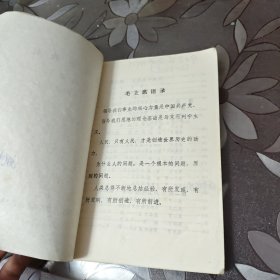 毛主席语录
领导我们事业的核心力量是中国共产党。
指导我们思想的理论基础是马克思列宁主
义。
人民，只有人民，才是创造世界历史的动
力。
为什么人的问题，是一个根本的问题，原
则的问题。
人类总得不断地总结经验，有所发现，有
所发明，有所创造，有所前进。